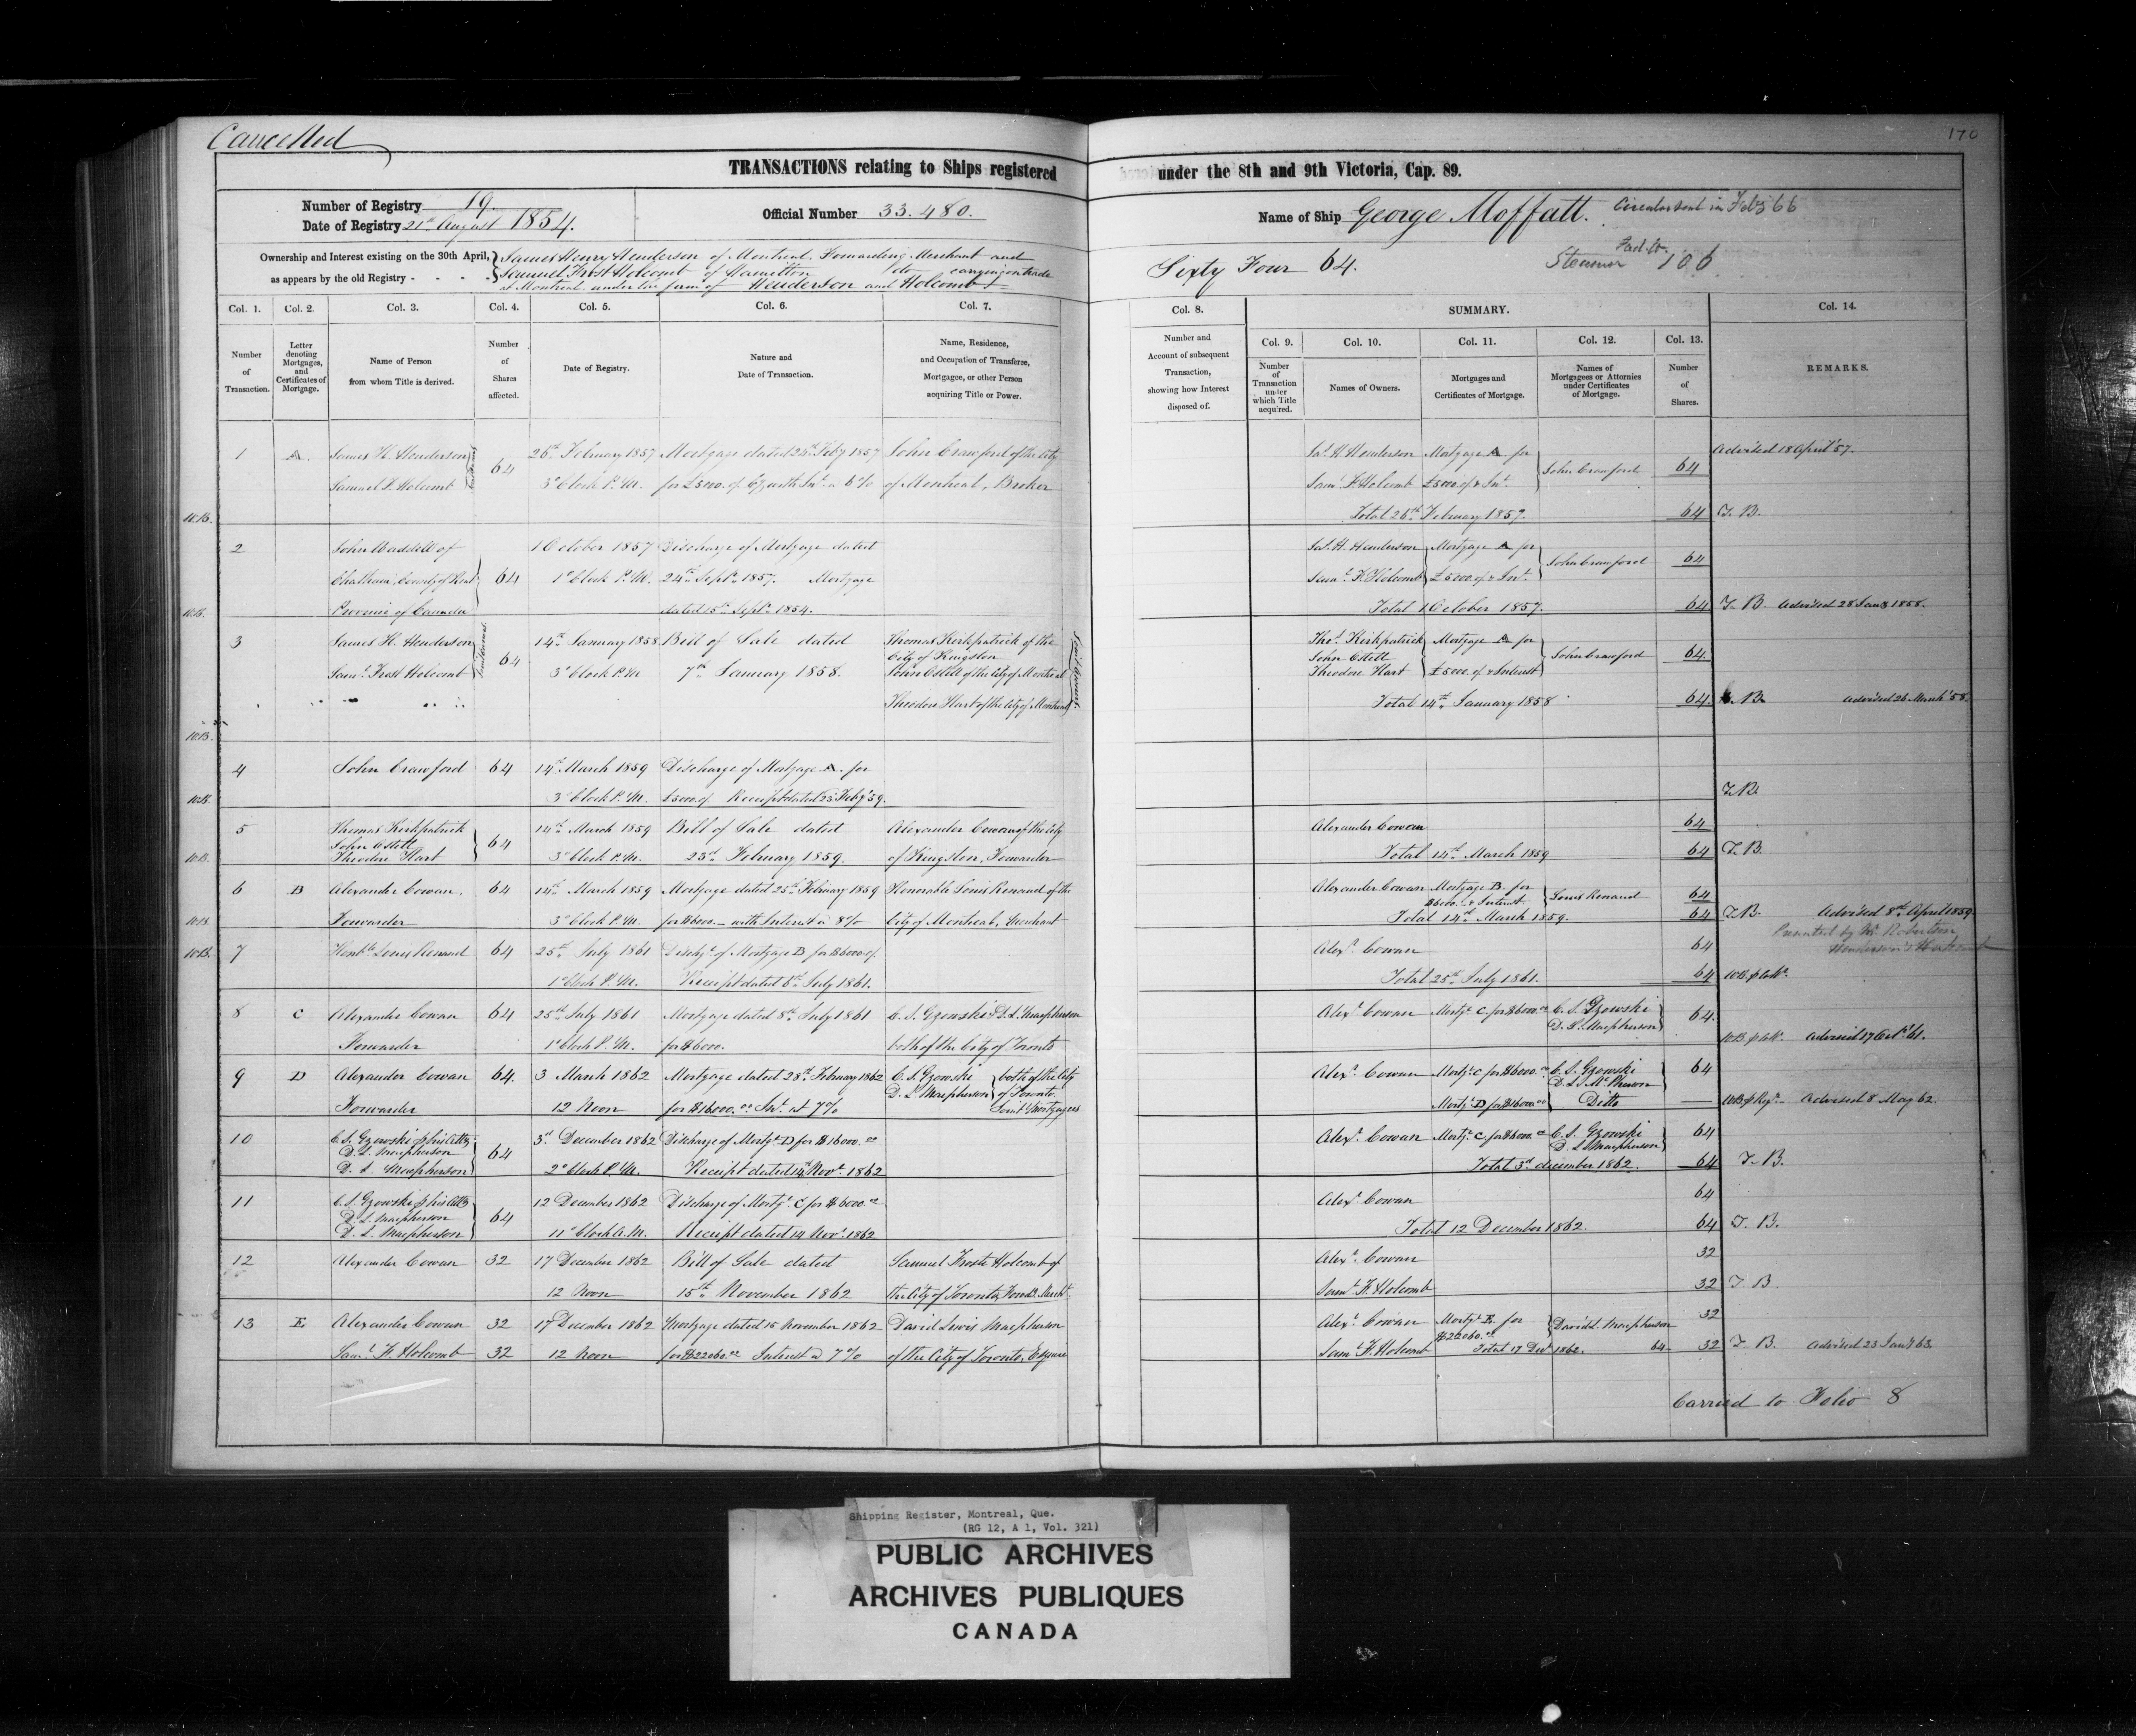 Cancelled
170
TRANSACTIONS relating to Ships registered under the 8th and 9th Victoria, Cap. 89.
Number of Registry 19.
Date of Registry 21st August 1854.
Official Number 33.480.
Name of Ship George Moffatt. Circular sent in Feby 66
Ownership and Interest existing on the 30th April,
as appears by the old Registry - - - -
James Henry Henderson of Montreal Forwarding Merchant and
Samuel Frost Holcomb of Hamilton do carrying on trade
at Montreal under the firm of Henderson and Holcomb
Sixty Four 64.
Steamer 106
Col. 1.
Number of Transaction.
Col. 2.
Letter denoting Mortgages, and Certificates of Mortgage.
Col. 3.
Name of Person from whom Title is derived.
Col. 4.
Number of Shares affected.
Col. 5.
Date of Registry.
Col. 6.
Nature and Date of Transaction.
Col. 7.
Name, Residence, and Occupation of Transferee, Mortgagee, or other Person acquiring Title or Power.
Col. 8.
Number and Account of subsequent Transaction, showing how Interest disposed of.
SUMMARY.
Col. 9.
Number of Transaction under which Title acquired.
Col. 10.
Names of Owners.
Col. 11.
Mortgages and Certificates of Mortgage.
Col. 12.
Names of Mortgagees or Attornies under Certificates of Mortgage.
Col. 13.
Number of Shares.
Col. 14.
REMARKS.
1 A. James H. Henderson 64 26th February 1857 Mortgage dated 24th Feby 1857 John Crawford of the City
Samuel F. Holcomb 3 o'Clock P.M. for £5000. cy with Int. a 6% of Montreal, Broker
Jas. H. Henderson Mortgage A for John Crawford 64 Advised 18 April '57.
Saml. F. Holcomb £5000. cy & Int.
Total 26th February 1857. 64 T. B.
2 John Waddell of 64 1 October 1857 Discharge of Mortgage dated
Chatham, County of Kent 1 o'Clock P.M. 24th Septr. 1857. Mortgage
Province of Canada dated 15th Septr. 1854.
Jas. H. Henderson Mortgage A for John Crawford 64
Saml. F. Holcomb £5000. cy & Int.
Total 1 October 1857. 64 T. B. Advised 28 Jany 1858.
3 James H. Henderson 64 14th January 1858 Bill of Sale dated Thomas Kirkpatrick of the
City of Kingston
Saml. Frost Holcomb 3 o'Clock P.M 7th January 1858. John Ostell of the City of Montreal
Theodore Hart of the City of Montreal
Thos. Kirkpatrick Mortgage A for John Crawford 64.
John Ostell
Theodore Hart £5000. cy & Interest
Total 14th January 1858 64. B. Advised 26 March '58.
4 John Crawford 64 14th March 1859 Discharge of Mortgage A. for
3 o'Clock P.M. £5000. cy Receipt dated 23 Feby '59. T. B.
5 Thomas Kirkpatrick 64 14th March 1859 Bill of Sale dated Alexander Cowan of the City
John Ostell
Theodore Hart 3 o'Clock P.M. 23d February 1859. of Kingston, Forwarder
Alexander Cowan 64
Total 14th March 1859 64 T. B.
6 B Alexander Cowan, 64 14th March 1859 Mortgage dated 25th February 1859 Honorable Louis Renaud of the
Forwarder 3 o'Clock P.M. for $6000. - with Interest a 8% City of Montreal, Merchant
Alexander Cowan Mortgage B. for Louis Renaud 64
$6000. & Interest
Total 14th March 1859. 64 T. B. Advised 8th April 1859
7 Honble Louis Renaud 64 25th July 1861 Dischge of Mortgage B for $6000. cy
1 o'Clock P.M. Receipt dated 6th July 1861.
Alexr. Cowan 64
Total 25th July 1861. 64
8 C Alexander Cowan 64 25th July 1861 Mortgage dated 8th July 1861 C. S. Gzowski & D. L. Macpherson
Forwarder 1 o'Clock P.M. for $6000. both of the City of Toronto
Alexr. Cowan Mortge C. for $6000.00 C. S. Gzowski
D. L. Macpherson 64.
Advised 17 Octr '61.
9 D Alexander Cowan 64. 3 March 1862 Mortgage dated 28th February 1862 C. S. Gzowski both of the City
D. L. Macpherson of Toronto
Forwarder 12 Noon for $16000.00 Int. at 7% Joint Mortgagees
Alexr. Cowan Mortge C for $6000.00 C. S. Gzowski 64
D. L. McPherson
Mortge D for $16000.00 Ditto — Advised 8 May 62.
10 C. S. Gzowski p his Atty 64 3rd December 1862 Discharge of Mortge D for $16000.00
D. L. Macpherson
D. L. Macpherson 2 o'Clock P.M. Receipt dated 14 Novr. 1862
Alexr. Cowan Mortge C. for $6000.00 C. S. Gzowski 64
D. L. Macpherson
Total 3d december 1862. 64 T. B.
11 C. S. Gzowski p his Atty 64 12 December 1862 Discharge of Mortge C for $6000.00
D. L. Macpherson
D. L. Macpherson 11 o'Clock A.M. Receipt dated 14 Novr. 1862
Alexr. Cowan 64
Total 12 December 1862. 64 T. B.
12 Alexander Cowan 32 17 December 1862 Bill of Sale dated Samuel Froste Holcomb of
12 Noon 15th November 1862 the City of Toronto,
Alexr. Cowan 32
Saml. F. Holcomb 32 T. B.
13 E. Alexander Cowan 32 17 December 1862 Mortgage dated 15 November 1862 David Lewis Macpherson
Saml. F. Holcomb 32 12 Noon for $22060.00 Interest a 7% of the City of Toronto, Esquire
Alexr. Cowan Mortge E. for David L. Macpherson 32
$22060.00
Saml. F. Holcomb Total 17 Decr 1862. 64 32 T. B. Advised 23 Jany 63.
Carried to Folio 8
Shipping Register, Montreal, Que.
(RG 12, A 1, Vol. 321)
PUBLIC ARCHIVES
ARCHIVES PUBLIQUES
CANADA